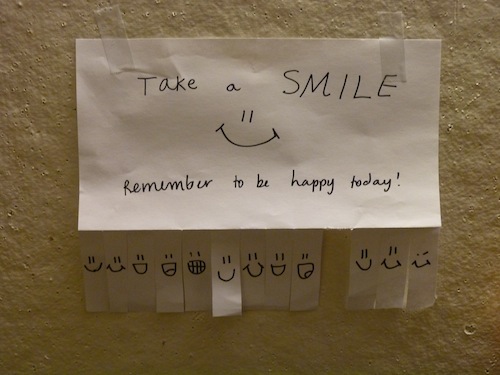 Take a SMILE
Remember to be happy today!